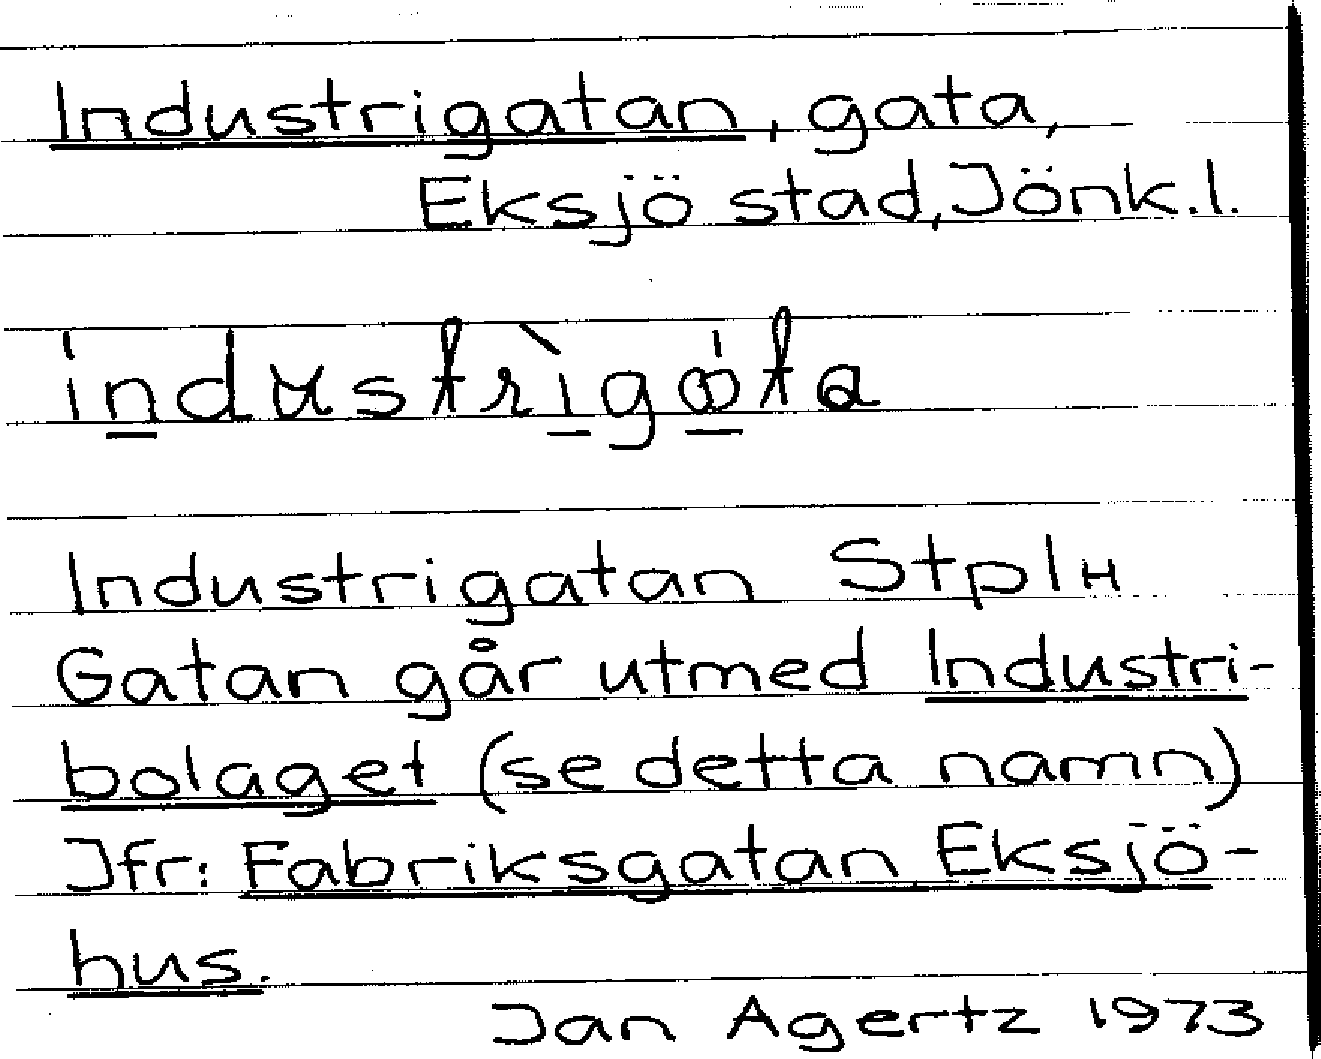 Industrigatan, gata,
Eksjö stad, Jönk.l.
industrigata
Industrigatan Stplн
Gatan går utmed Industri-
bolaget (se detta namn)
Jfr: Fabriksgatan Eksjö-
hus.
Jan Agertz 1973